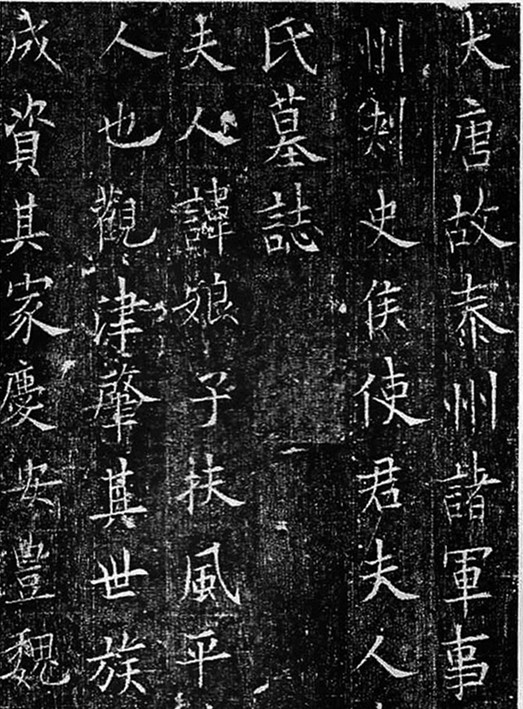 大唐故泰州諸軍事
州刺史侯使君夫人
氏墓誌
夫人諱娘子扶風平
人也觀津肇其世族
成資其家慶安豊魏